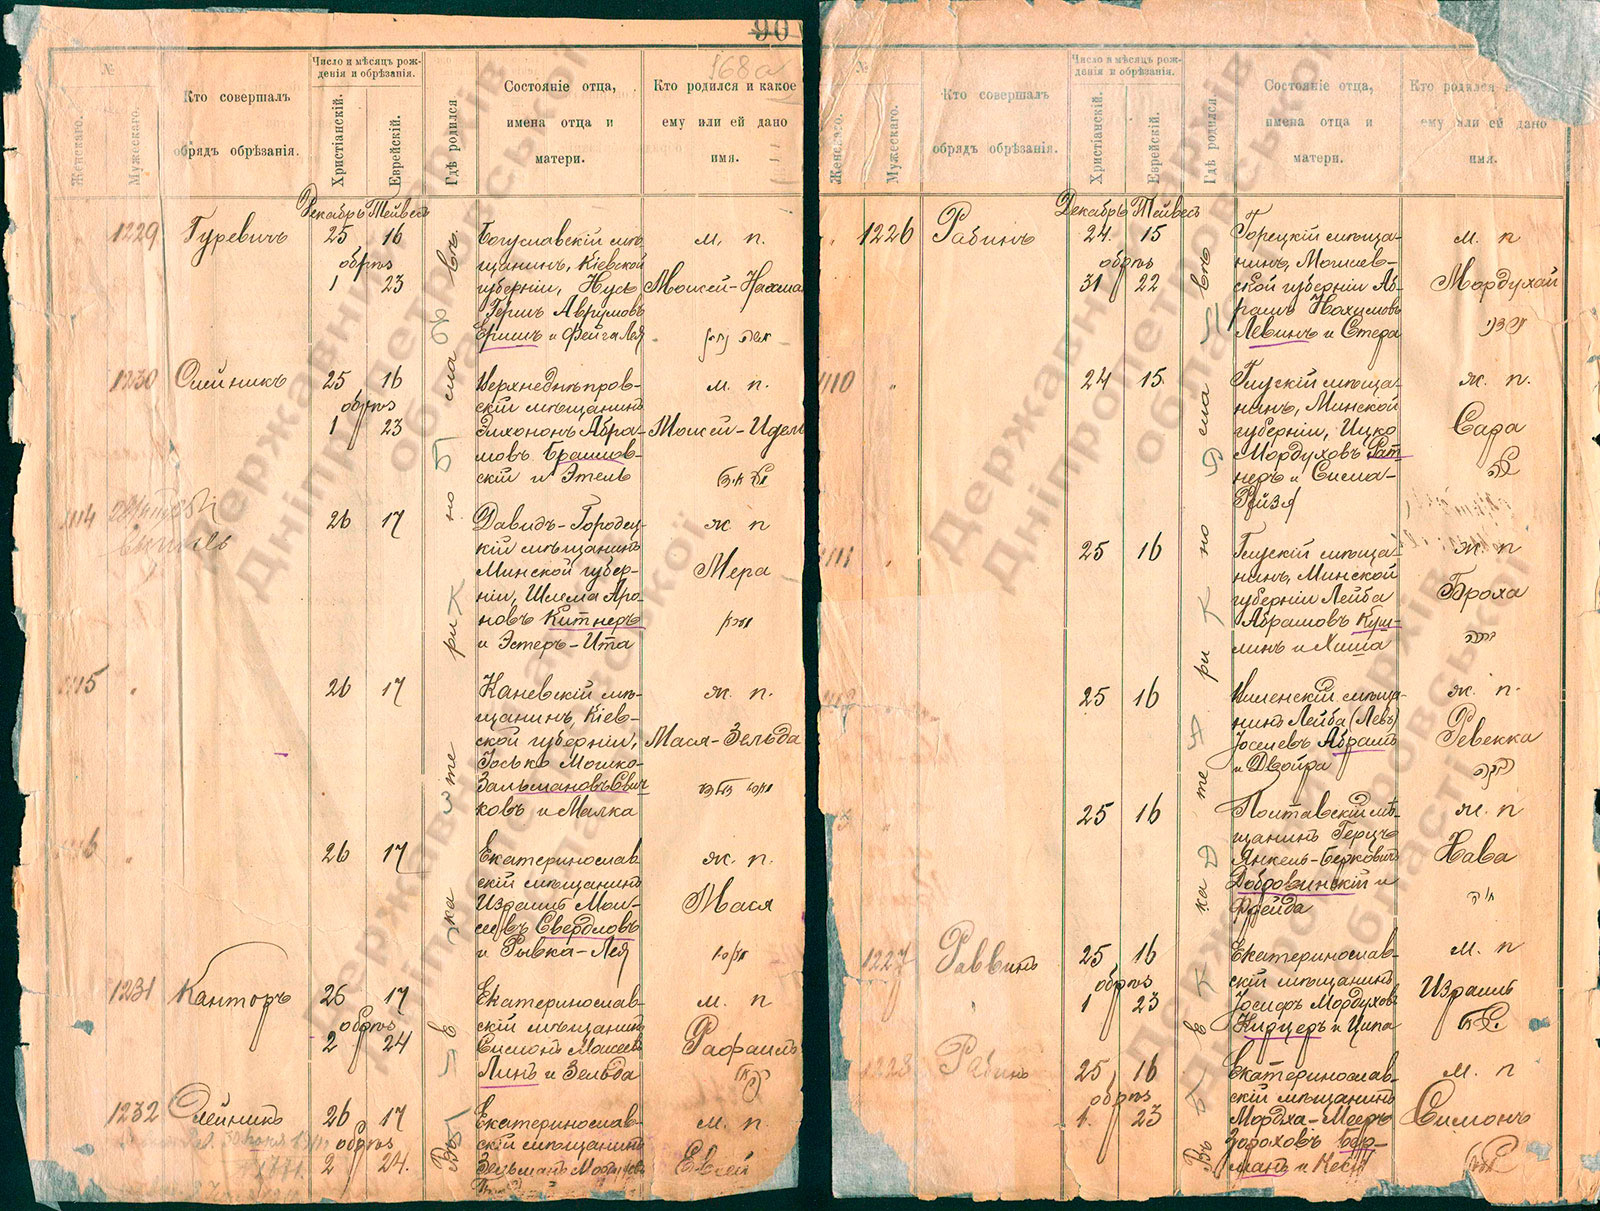 90
168а
№
Женскаго.
Мужескаго.
Кто совершалъ
обрядъ обрѣзанія.
Число и мѣсяцъ рож-
денія и обрѣзанія.
Христіанскій.
Еврейскій.
Гдѣ родился
Состояніе отца,
имена отца и
матери.
Кто родился и какое
ему или ей дано
имя.
Декабрь Тейвесъ
1229 Гуревичъ 25 16
обрѣз
1 23
Богуславскій мѣ-
щанинъ, Кіевской
губерніи, Нусь
Гершъ Аврумовъ
Ершъ и Фейга Лея
м. п.
Моисей-Нахма
1230 Олейникъ 25 16
обрѣз
1 23
Верхнеднѣпров-
скій мѣщанинъ
Элхононъ Абра-
мовъ Браилов-
скій и Этель
м. п.
Моисей-Идель
1114
26 17
Давидъ-Городец-
кій мѣщанинъ
Минской губер-
ніи, Шлема Аро-
новъ Китнеръ
и Эстеръ-Ита
ж п
Мера
1115 26 17
Каневскій мѣ-
щанинъ, Кіев-
ской губерніи,
Госько Мошко-
Зальмановъ Свич-
ковъ и Малка
ж. п.
Мася-Зельда
1116 26 17
Екатеринослав
скій мѣщанинъ
Израиль Мои-
сеевъ Свердловъ
и Рывка-Лея
ж. п.
Мася
1231 Канторъ 26 17
обрѣз
2 24
Екатеринослав-
скій мѣщанинъ
Симонъ Моисеев
Линъ и Зельда
м. п
Рафаилъ
1232 Олейникъ 26 17
обрѣз
2 24.
Екатеринослав-
скій мѣщанинъ
Зельманъ
м. п.
Евсей
Въ Екатеринославѣ
№
Женскаго.
Мужескаго.
Кто совершалъ
обрядъ обрѣзанія.
Число и мѣсяцъ рож-
денія и обрѣзанія.
Христіанскій.
Еврейскій.
Гдѣ родился
Состояніе отца,
имена отца и
матери.
Кто родился и
ему или ей дано
имя.
Декабрь Тейвесъ
1226 Рабинъ 24. 15
обрѣз
31 22
Горецкій мѣща-
нинъ, Могилев-
ской губерніи Аб-
рамъ Нохимовъ
Левинъ и Стера
м. п
Мордухай
מרדכי
1110 24 15
Глускій мѣща-
нинъ, Минской
губерніи, Ицко
Мордуховъ Рат-
неръ и Сима-
Рейзя
ж. п.
Сара
1111 25 16
Глускій мѣща-
нинъ, Минской
губерніи Лейба
Абрамовъ Куш-
линъ и Хиша
ж. п
Броха
ברכה
25 16
Виленскій мѣща-
нинъ Лейба (Левъ)
Іоселевъ Абрамъ
и Двойра
ж. п.
Ревекка
רבקה
25 16
Полтавскій мѣ-
щанинъ Герцъ
Янкель-Берковичъ
Добровинскій и
Фрейда
ж. п
Хава
חוה
1227 Раввинъ 25 16
обрѣз
1 23
Екатеринослав-
скій мѣщанинъ
Іосифъ Мордухов
Кирцеръ и Ципа
м. п
Израиль
1228 Рабинъ 25 16
обрѣз
1. 23
Екатеринослав-
скій мѣщанинъ
Мордха-Мееръ
Зораховъ Бер-
манъ и Кеся
м. п
Симонъ
Въ Екатеринославѣ
Державний архів
Дніпропетровської
області